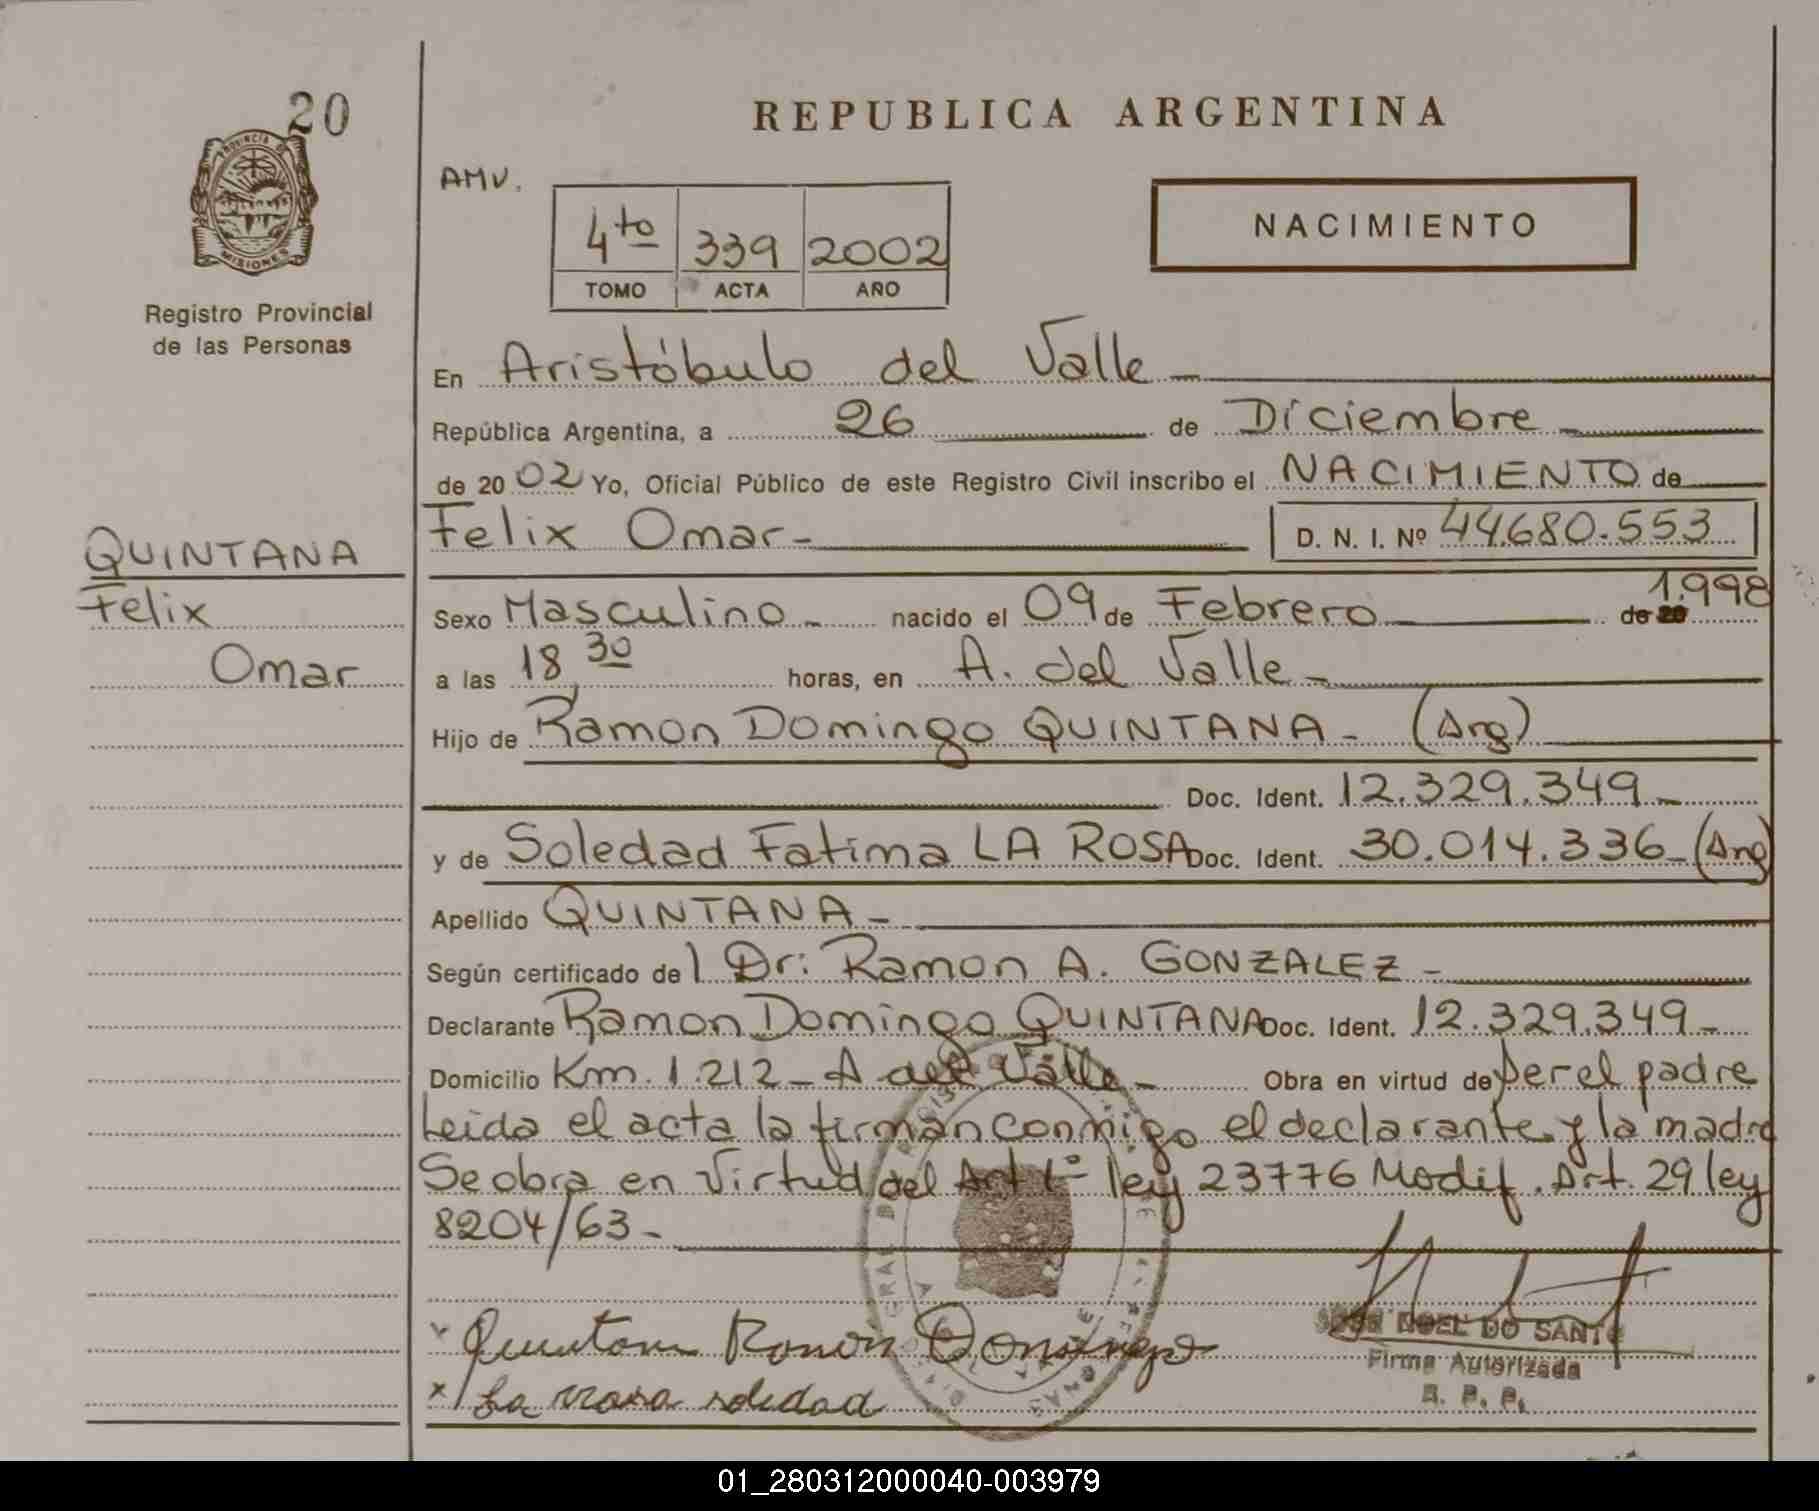 20
PROVINCIA DE
MISIONES
Registro Provincial
de las Personas
QUINTANA
Felix
Omar
REPUBLICA ARGENTINA
AMV.
4to 339 2002
TOMO ACTA AÑO
NACIMIENTO
En Aristóbulo del Valle
República Argentina, a 26 de Diciembre
de 2002 Yo, Oficial Público de este Registro Civil inscribo el NACIMIENTO de
Felix Omar - D. N. I. Nº 44.680.553
Sexo Masculino - nacido el 09 de Febrero de 20 1.998
a las 18,30 horas, en A. del Valle -
Hijo de Ramon Domingo QUINTANA - (Arg)
Doc. Ident. 12.329.349 -
y de Soledad Fatima LA ROSA Doc. Ident. 30.014.336 - (Arg)
Apellido QUINTANA -
Según certificado del Dr: Ramon A. GONZALEZ -
Declarante Ramon Domingo QUINTANA Doc. Ident. 12.329.349 -
Domicilio Km. 1.212 - A del Valle - Obra en virtud de ser el padre
Leida el acta la firman conmigo el declarante y la madre
Se obra en virtud del Art 1º ley 23776 Modif. Art. 29 ley
8204/63 -
Quintana Ramon Domingo
x La rosa soledad
NOEL DO SANTO
Firma Autorizada
R. P. P.
01_280312000040-003979